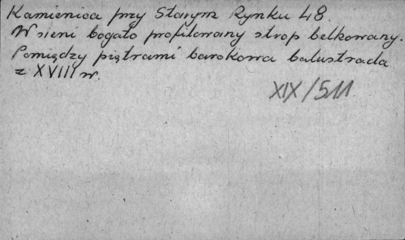 Kamienica przy Starym Rynku 48.
W sieni bogato profilowany strop belkowany.
Pomiędzy piętrami barokowa balustrada
z XVIII w.
XIX/511